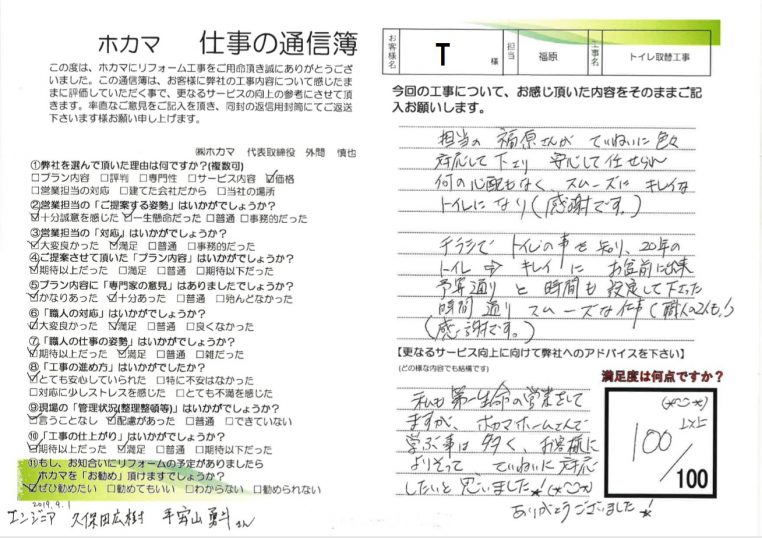 ホカマ 仕事の通信簿
この度は、ホカマにリフォーム工事をご用命頂き誠にありがとうござ
いました。この通信簿は、お客様に弊社の工事内容について感じたま
まに評価していただく事で、更なるサービスの向上の参考にさせて頂
きます。率直なご意見をご記入を頂き、同封の返信用封筒にてご返送
下さいます様お願い申し上げます。
㈱ホカマ 代表取締役 外間 慎也
①弊社を選んで頂いた理由は何ですか?(複数可)
□プラン内容 □評判 □専門性 □サービス内容 ☑価格
□営業担当の対応 □建てた会社だから □当社の場所
②営業担当の「ご提案する姿勢」はいかがでしょうか?
☑十分誠意を感じた ☑一生懸命だった □普通 □事務的だった
③営業担当の「対応」はいかがでしょうか?
☑大変良かった ☑満足 □普通 □事務的だった
④ご提案させて頂いた「プラン内容」はいかがでしょうか?
☑期待以上だった ☑満足 □普通 □期待以下だった
⑤プラン内容に「専門家の意見」はありましたでしょうか?
☑かなりあった ☑十分あった □普通 □殆んどなかった
⑥「職人の対応」はいかがでしょうか?
☑大変良かった ☑満足 □普通 □良くなかった
⑦「職人の仕事の姿勢」はいかがでしょうか?
☑期待以上だった ☑満足 □普通 □雑だった
⑧「工事の進め方」はいかがでしたか?
☑とても安心していられた □特に不安はなかった
□対応に少しストレスを感じた □とても不満を感じた
⑨現場の「管理状況(整理整頓等)」はいかがでしょうか?
☑言うことなし ☑配慮があった □普通 □できていない
⑩「工事の仕上がり」はいかがでしょうか?
☑期待以上だった ☑満足 □普通 □期待以下だった
⑪もし、お知合いにリフォームの予定がありましたら
ホカマを「お勧め」頂けますでしょうか?
☑ぜひ勧めたい □勧めてもいい □わからない □勧められない
2019.9.1
エンジニア 久保田広樹 平安山勇斗さん
お客様名 T 様 担当 福原 工事名 トイレ取替工事
今回の工事について、お感じ頂いた内容をそのままご記
入お願いします。
担当の福原さんが ていねいに色々
対応して下さり 安心して任せられ
何の心配もなく スムーズに キレイな
トイレになり(感謝です。)
チラシで トイレの事を知り、20年の
トイレ ⇒ キレイ に お盆前に出来
予算通り と 時間も 設定して下さった
時間 通り スムーズな仕事(職人の2人も)
(感謝です。)
【更なるサービス向上に向けて弊社へのアドバイスを下さい】
(どの様な内容でも結構です)
私も 第一生命の営業をして
ますが、ホカマホームさんで
学ぶ事は 多く お客様に
よりそって ていねいに対応
したいと 思いました★!(*^^*)
ありがとうございました★!
満足度は何点ですか?
100
/100